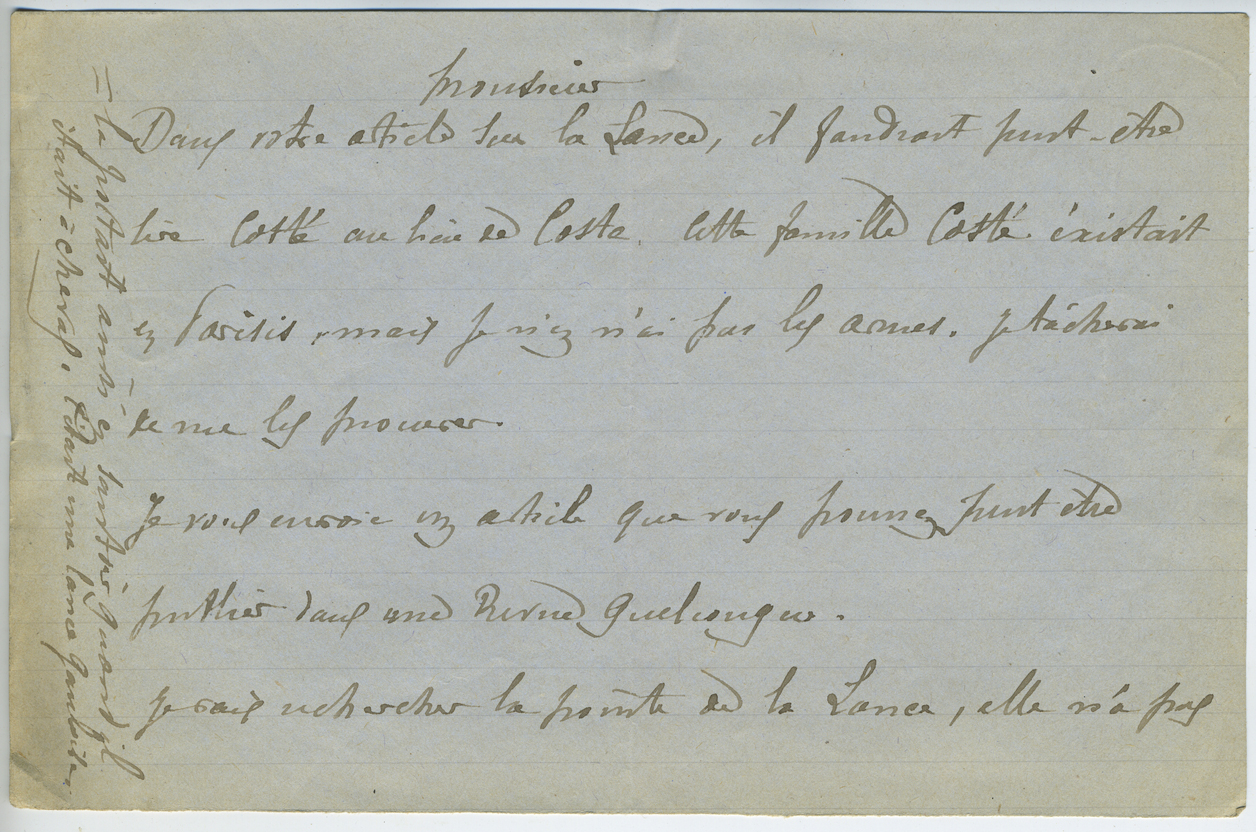 Monsieur
Dans votre article sur la Lance, il faudrait peut-être
lire Costé au lieu de Costa. Cette famille Costé existait
en Parisis, mais je n'en n'ai pas les armes. Je tâcherai
de me les procurer.
Je vous envoie un article que vous pourrez peut être
publier dans une Revue quelconque.
Je vais rechercher la pointe de la Lance, elle n'a pas
– le portait en sautoir quand il
était à cheval. C'était une lance Gauloise.